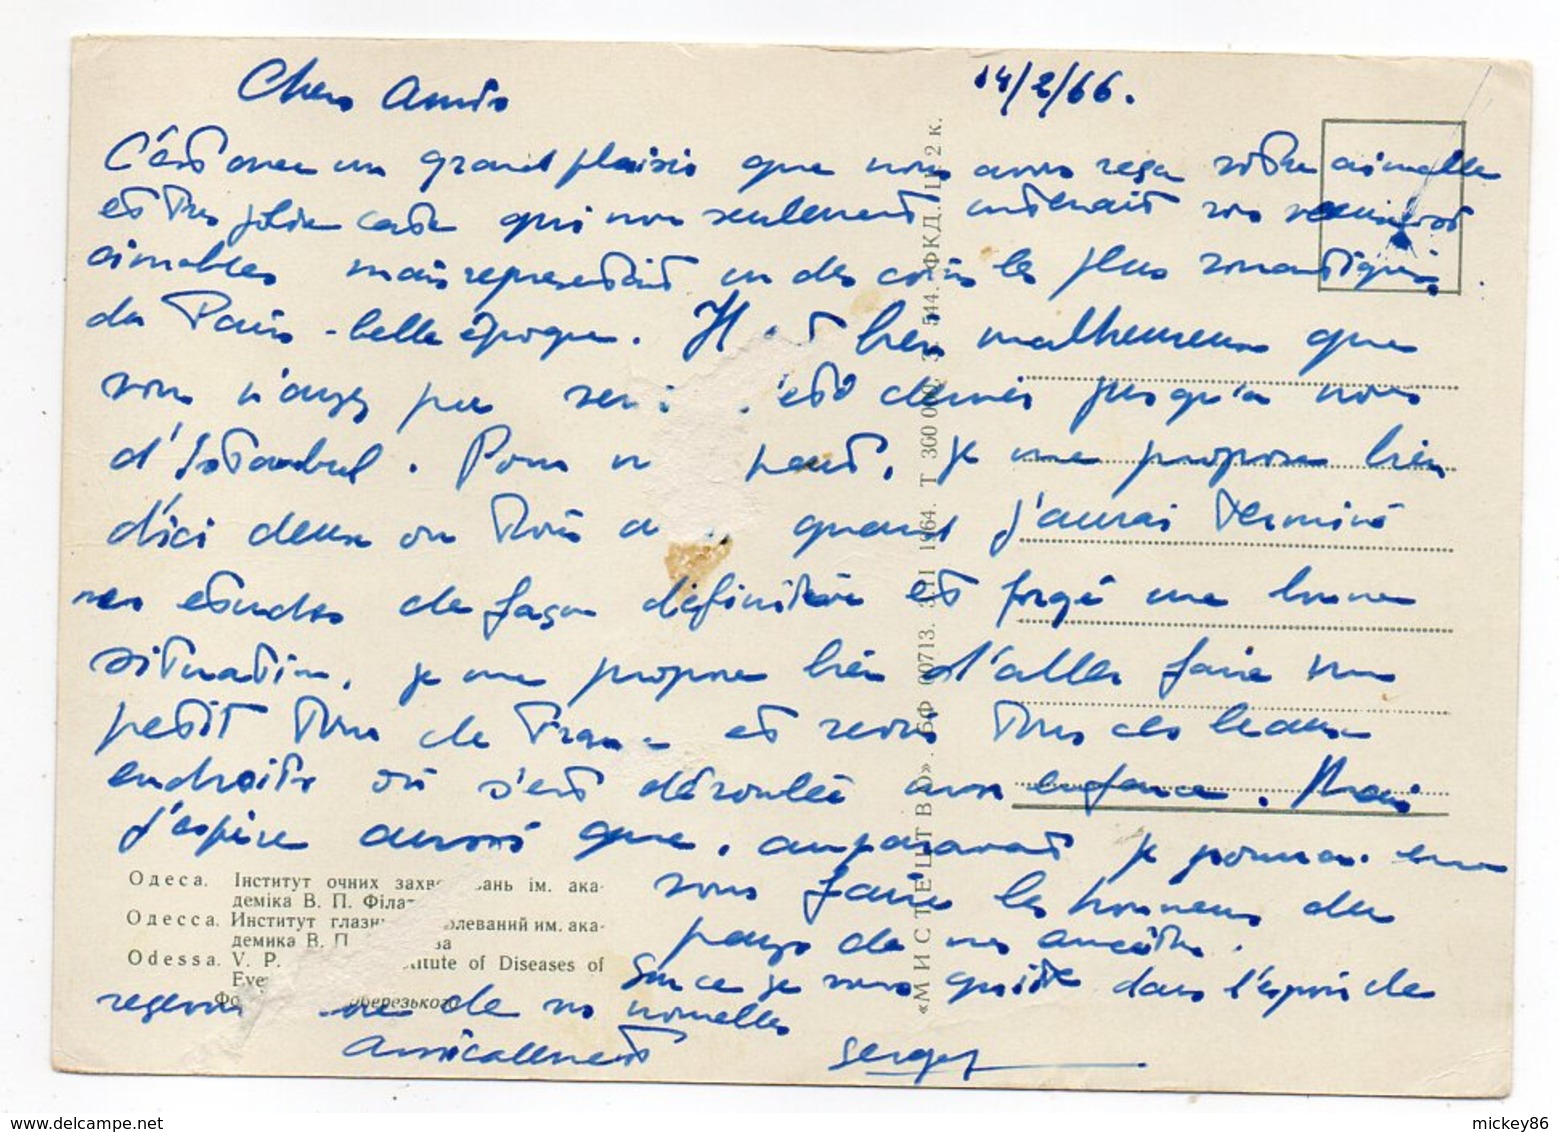 Chers Amis
14/2/66.
C'est avec un grand plaisir que nous avons reçu votre aimable
et très jolie carte qui non seulement contenait vos
aimables mais representait un des coins les plus romantiques
du Paris - belle époque. Il bien malheureux que
vous n'ayez pu jusqu'à nous
d'Istambul. Pour part, je me propose bien
d'ici deux ou trois quand j'aurai terminé
mes etudes de façon définitive et forgé une bonne
situation, je me propose bien d'aller faire un
petit tour de France et revoir tous ces beaux
endroits où s'est déroulée mon enfance. Mais
j'espère aussi que, auparavant je pourrai
vous faire les honneurs du
pays de mes ancêtres.
Sur ce je vous quitte dans l'espoir de
de vos nouvelles
Amicalement Serge
Одеса. Інститут очних ім. ака-
деміка В. П.
Одесса. Институт им. ака-
демика В. П.
Odessa. V. P. of Diseases of
«МИСТЕЦТВО». БФ 00713. 3/II 1964. Т 360 000. З. 544. ФКД. Ц. 2 к.
mickey86